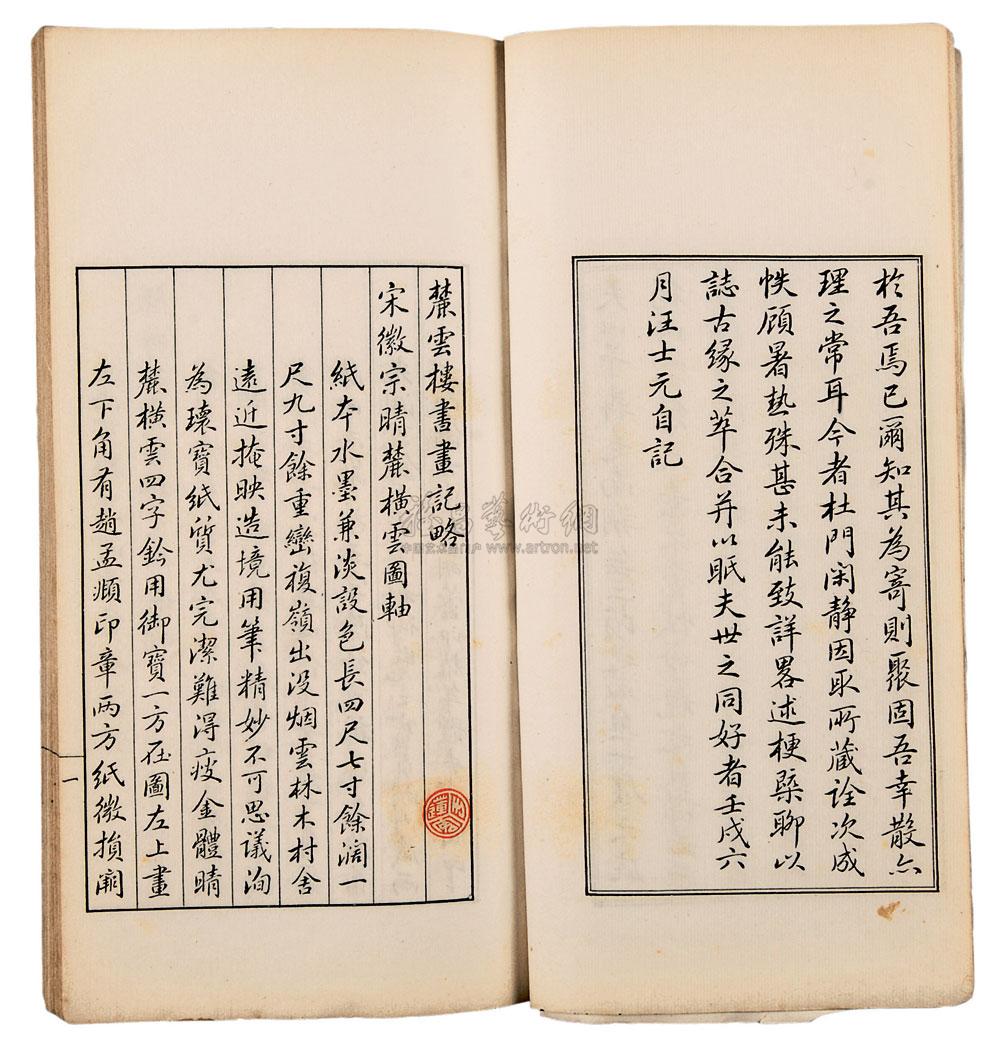 於吾焉已爾知其為寄則聚固吾幸散亦
理之常耳今者杜門閑静因取所藏詮次成
帙顧暑熱殊甚未能致詳畧述梗槩聊以
誌古緣之萃合并以眂夫世之同好者壬戌六
月汪士元自記
麓雲樓書畫記略
宋徽宗晴麓橫雲圖軸
紙本水墨兼淡設色長四尺七寸餘濶一
尺九寸餘重巒複嶺出没烟雲林木村舍
遠近掩映造境用筆精妙不可思議洵
為瓌寶紙質尤完潔難得瘦金體晴
麓橫雲四字鈐用御寶一方在圖左上畫
左下角有趙孟頫印章兩方紙微損
一
www.artron.net